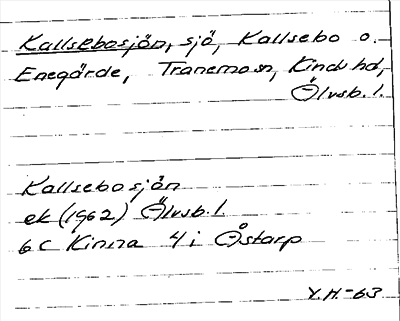 Kallsebosjön, sjö, Kallsebo o.
Enegärde, Tranemo sn, Kind hd,
Älvsb. l.
Kallsebosjön
ek (1962) Älvsb. l.
6 C Kinna 4 i Östarp
Y.H.-63